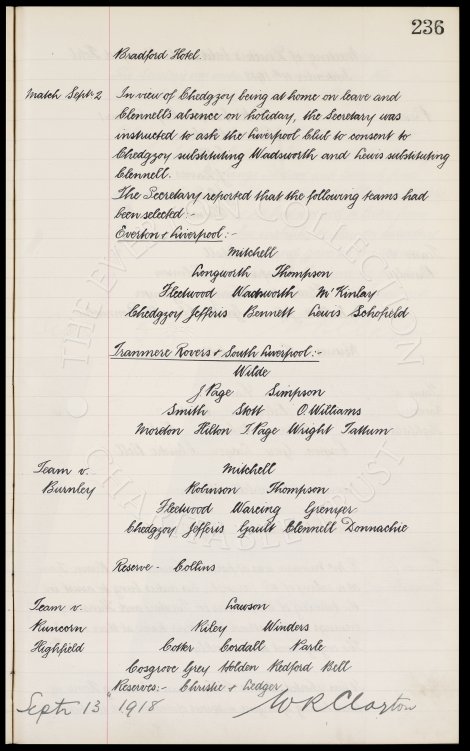 236
Bradford Hotel.
Match Sept. 2 In view of Chedgzoy being at home on leave and
Clennell's absence on holiday, the Secretary was
instructed to ask the Liverpool Club to consent to
Chedgzoy substituting Wadsworth and Lewis substituting
Clennell.
The Secretary reported that the following teams had
been selected:-
Everton & Liverpool:-
Mitchell
Longworth Thompson
Fleetwood Wadsworth McKinlay
Chedgzoy Jefferis Bennett Lewis Schofield
Tranmere Rovers & South Liverpool:-
Wilde
J Page Simpson
Smith Stott O. Williams
Moreton Hilton T. Page Wright Tattum
Team v. Mitchell
Burnley Robinson Thompson
Fleetwood Wareing Grenyer
Chedgzoy Jefferis Gault Clennell Donnachie
Reserve - Collins
Team v. Lawson
Runcorn Riley Winders
Highfield Cotter Cordall Parle
Cosgrove Grey Holden Redford Bell
Reserves:- Christie & Ledger
Septr 13 1918 W R Clayton
THE EVERTON COLLECTION
CHARITABLE TRUST